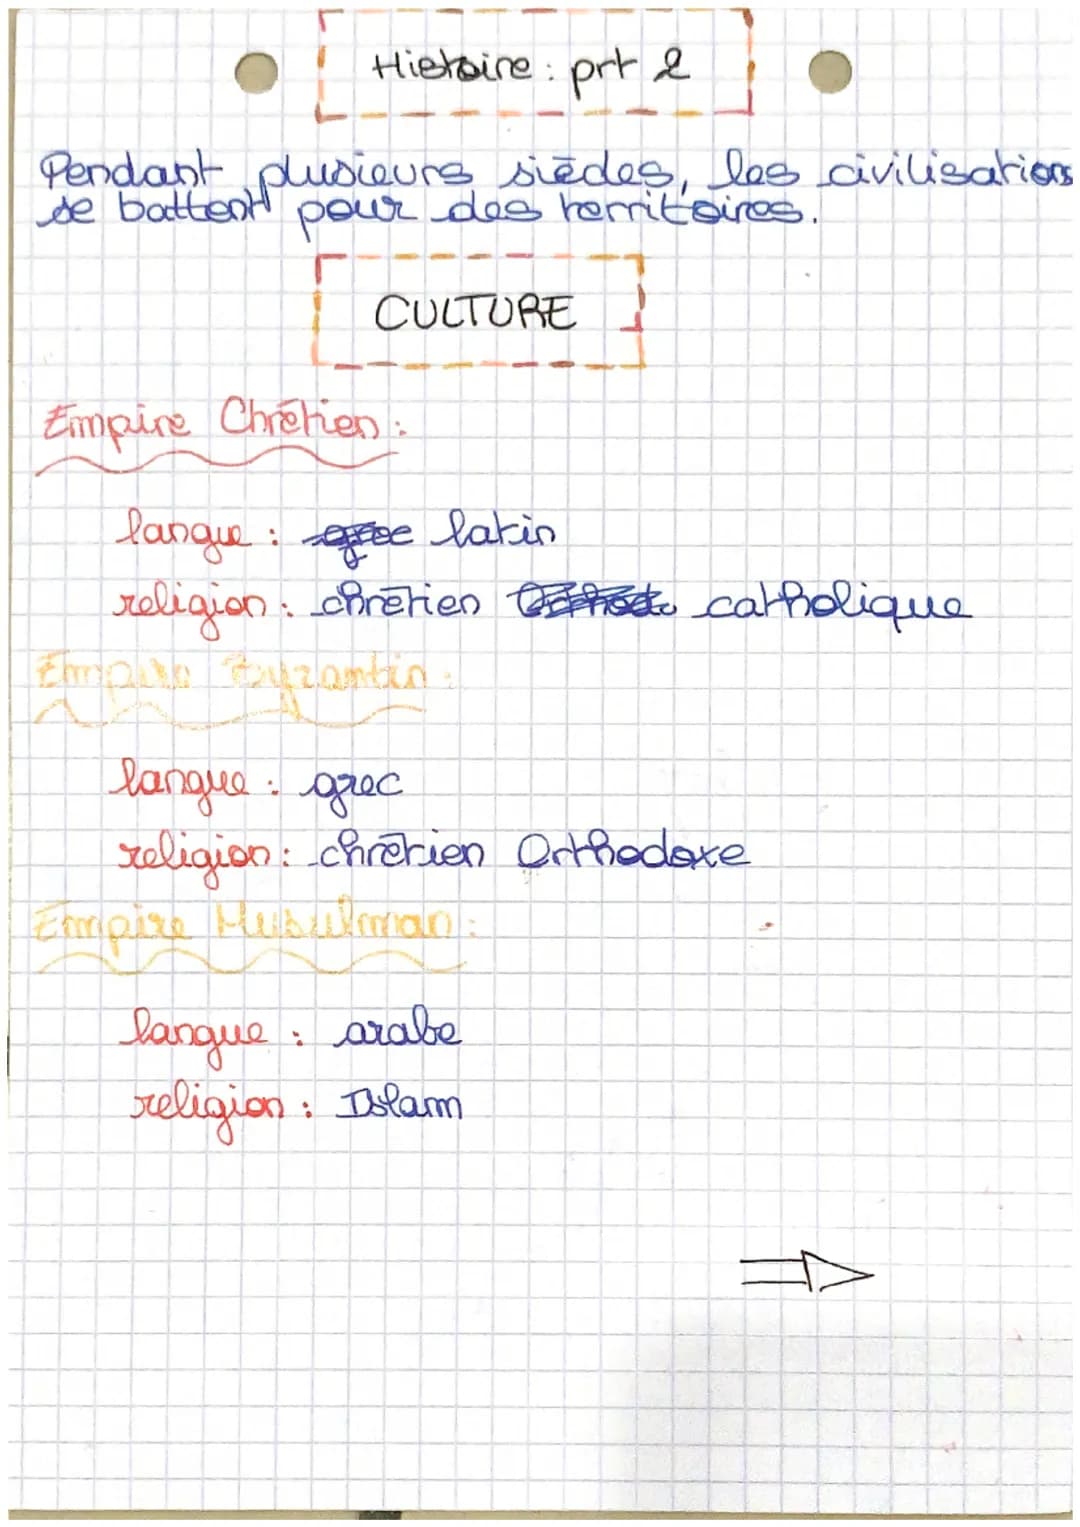 Histoire : prt 2
Pendant plusieurs siècles, les civilisations
se battent pour des territoires.
CULTURE
Empire Chrétien :
langue : grec latin
religion : chrétien catholique
Empire Byzantin :
langue : grec
religion : chrétien Orthodoxe
Empire Musulman :
langue : arabe
religion : Islam